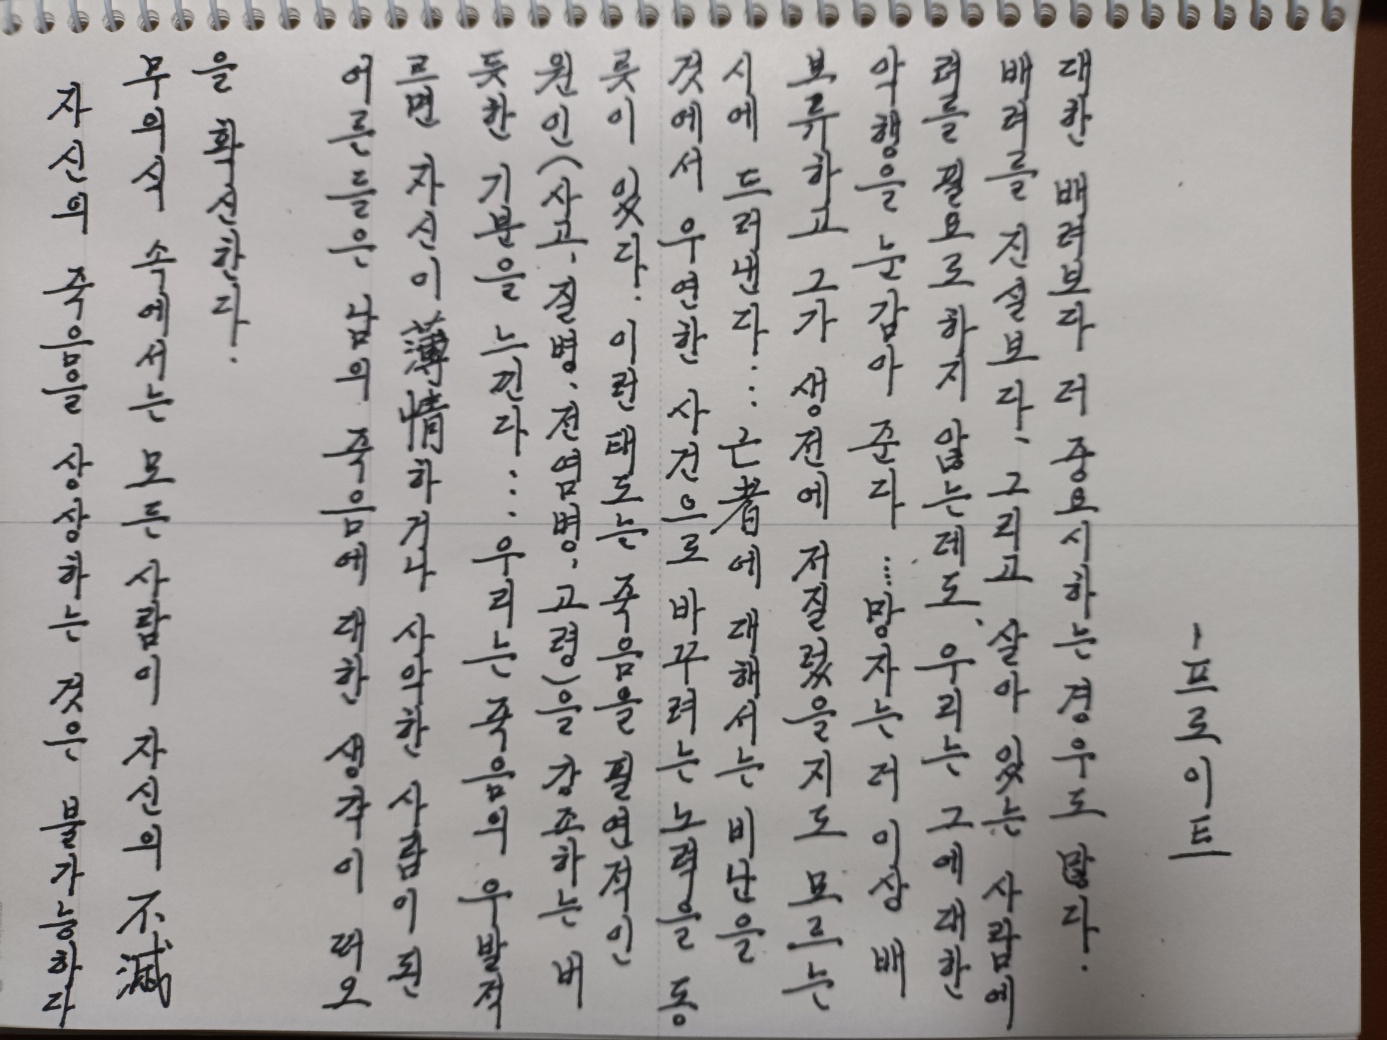 자신의 죽음을 상상하는 것은 불가능하다
무의식 속에서는 모든 사람이 자신의 不滅
을 확신한다.
어른들은 남의 죽음에 대한 생각이 떠오
르면 자신이 薄情하거나 사악한 사람이 된
듯한 기분을 느낀다... 우리는 죽음의 우발적
원인(사고, 질병, 전염병, 고령)을 강조하는 버
릇이 있다. 이런 태도는 죽음을 필연적인
것에서 우연한 사건으로 바꾸려는 노력을 동
시에 드러낸다... 亡者에 대해서는 비난을
보류하고 그가 생전에 저질렀을지도 모르는
악행을 눈감아 준다 ... 망자는 더 이상 배
려를 필요로 하지 않는데도, 우리는 그에 대한
배려를 진실보다, 그리고 살아 있는 사람에
대한 배려보다 더 중요시하는 경우도 많다.
-프로이트